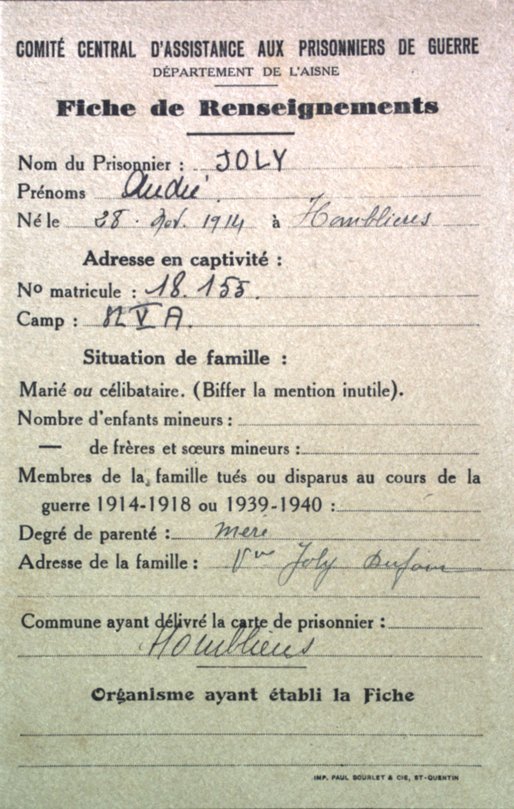 COMITÉ CENTRAL D'ASSISTANCE AUX PRISONNIERS DE GUERRE
DÉPARTEMENT DE L'AISNE
Fiche de Renseignements
Nom du Prisonnier : JOLY
Prénoms André
Né le 28 . 1914 à Homblieres
Adresse en captivité :
No matricule : 18.155.
Camp : V A.
Situation de famille :
Marié ou célibataire. (Biffer la mention inutile).
Nombre d'enfants mineurs :
— de frères et sœurs mineurs :
Membres de la famille tués ou disparus au cours de la
guerre 1914-1918 ou 1939-1940 :
Degré de parenté : mère
Adresse de la famille : Vve Joly Dufour
Commune ayant délivré la carte de prisonnier :
Homblieres
Organisme ayant établi la Fiche
IMP. PAUL BOURLET & CIE, ST-QUENTIN